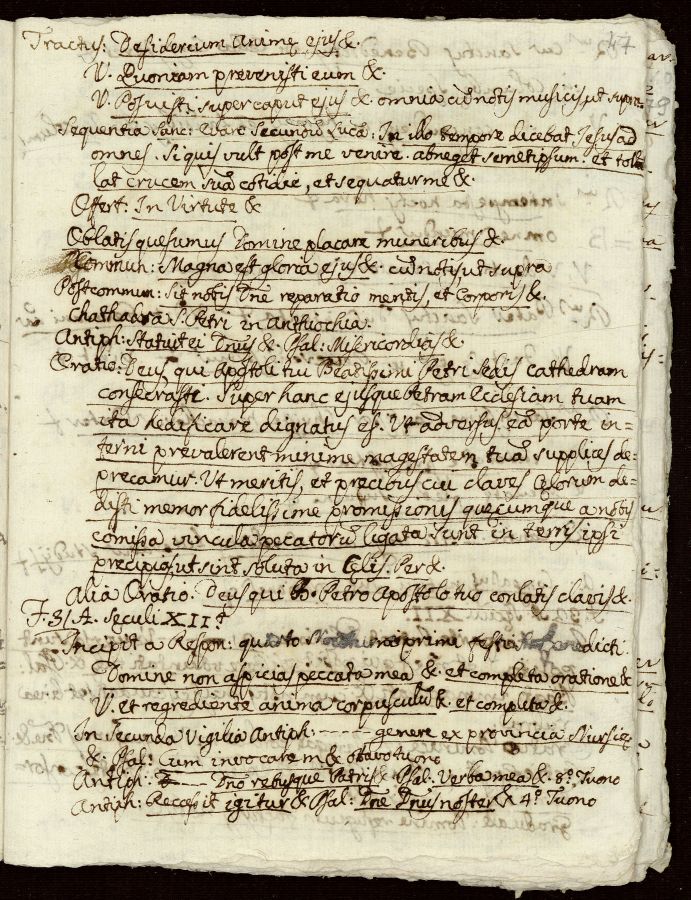 47
Tractus: Desiderium anime ejus &.
V. Quoniam prevenisti eum &.
V. Posuisti super caput ejus & omnia cũ notis musicis ut supra
Sequentia Sanc: Evan: Secundũ Lucã: In illo tempore dicebat Jesus ad
omnes. Si quis vult post me venire. abneget semetipsum. et tol
lat crucem suã cotidie, et sequatur me &.
Offert: In Virtute &
Oblatis quesumus Domine placare muneribus &.
Commun: Magna est gloria ejus &. cũ notis, ut supra
Postcommun: Sit nobis Dñe reparatio mentis, et Corporis &.
Chathadra S. Petri in Anthiochia.
Antiph: Statuit ei Dñus & Psal: Misericordias &.
Oratio: Deus qui Apostoli tui Beatissimi Petri sedis cathedram
consecrasti. Super hanc ejusque Petram Ecclesiam tuam
ita hedificare dignatus es. Ut adversus eã porte in=
ferni prevalerent minime magestatem tuã supplices de=
precamur. Ut meritis, et precibus cui claves Celorum de=
disti memor fidelissime promissionis quecumque a nobis
comissa vincula pecatorũ ligata sunt in terris ipsi
precipias ut sint soluta in Celis. Per &.
Alia Oratio. Deus qui B. Petro Apostolo tuo conlatis clavis &.
F. 3/A. Seculi XII.
Incipit a Respon: quarto primi festi dicti
Domine non aspicias peccata mea &. et completa oratione &
V. et regrediente anima corpusculũ &. et completa &.
In Secunda Vigilia Antiph: ------ genere ex provincia Nursie
&. Psal: Cum invocarem & octavo tuono
Antiph: --- Dño rebusque Patris & Psal: Verba mea & 8.º Tuono
Antiph: Recessit igitur & Psal: Dñe Dñus noster & 4.º Tuono